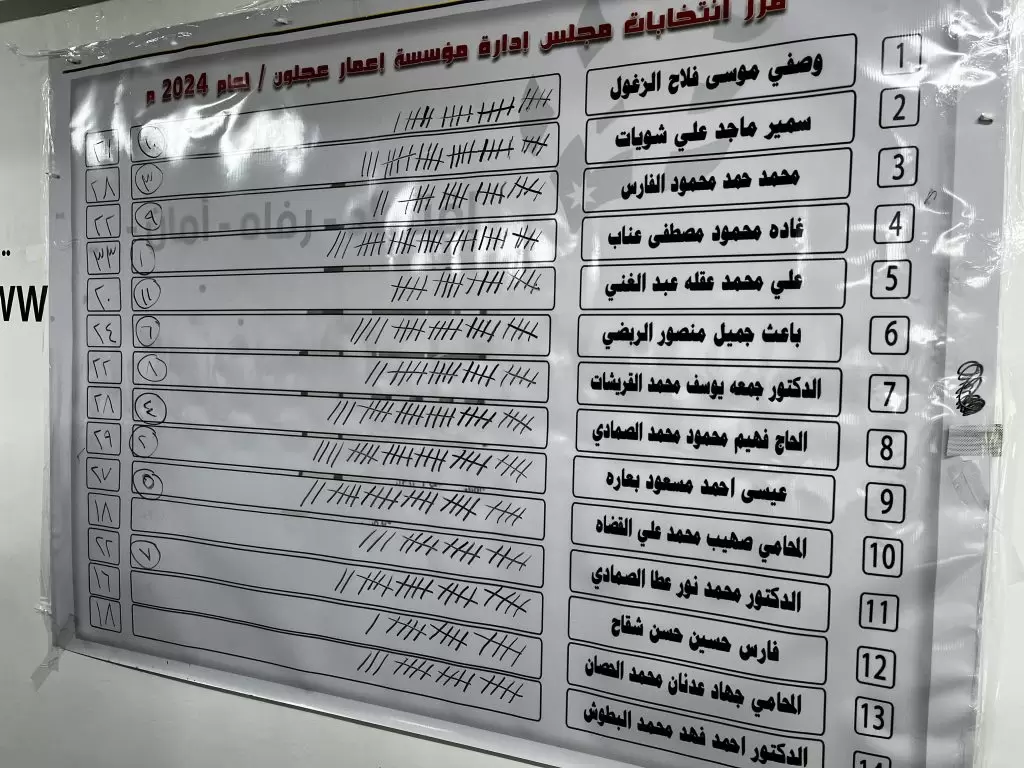 فرز انتخابات مجلس إدارة مؤسسة إعمار عجلون / لعام 2024 م
1 وصفي موسى فلاح الزغول ٢١ ١٠
2 سمير ماجد علي شويات ٢٨ ٣
3 محمد حمد محمود الفارس ٢٢ ٩
4 غاده محمود مصطفى عناب ٣٣ ١
5 علي محمد عقله عبد الغني ٢٠ ١١
6 باعث جميل منصور الربضي ٢٤ ٦
7 الدكتور جمعه يوسف محمد القريشات ٢٢ ٨
8 الحاج فهيم محمود محمد الصمادي ٢٨ ٤
9 عيسى احمد مسعود بعاره ٢٩ ٢
10 المحامي صهيب محمد علي القضاه ٢٧ ٥
11 الدكتور محمد نور عطا الصمادي ١٨
12 فارس حسين حسن شقاح ٢٢ ٧
13 المحامي جهاد عدنان محمد الحصان ١٦
14 الدكتور احمد فهد محمد البطوش ١٨
رفاه - أمان
WW